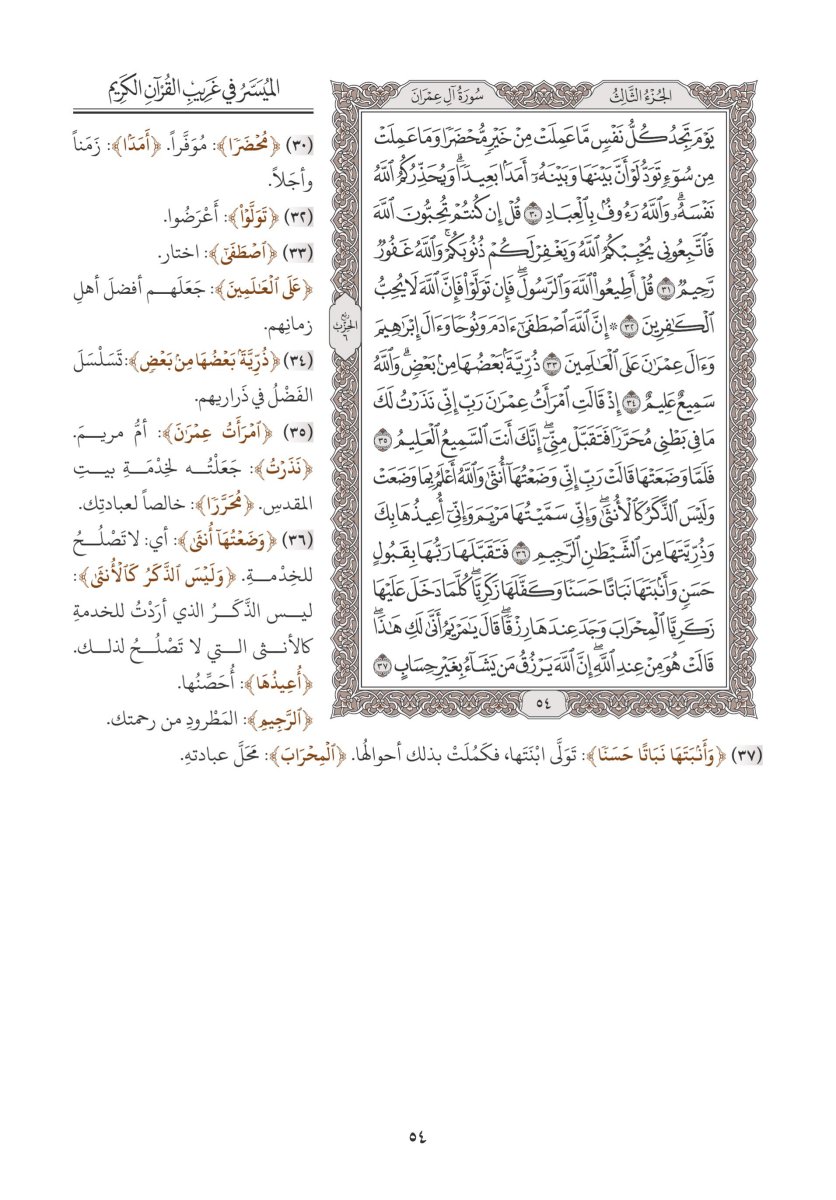 الجُزْءُ الثَّالِثُ
سُورَةُ آلِ عِمْرَانَ
يَوْمَ تَجِدُ كُلُّ نَفْسٖ مَّا عَمِلَتْ مِنْ خَيْرٖ مُّحْضَرٗا وَمَا عَمِلَتْ
مِن سُوٓءٖ تَوَدُّ لَوْ أَنَّ بَيْنَهَا وَبَيْنَهُۥٓ أَمَدَۢا بَعِيدٗاۗ وَيُحَذِّرُكُمُ ٱللَّهُ
نَفْسَهُۥۗ وَٱللَّهُ رَءُوفُۢ بِٱلْعِبَادِ ٣٠ قُلْ إِن كُنتُمْ تُحِبُّونَ ٱللَّهَ
فَٱتَّبِعُونِي يُحْبِبْكُمُ ٱللَّهُ وَيَغْفِرْ لَكُمْ ذُنُوبَكُمْۚ وَٱللَّهُ غَفُورٞ
رَّحِيمٞ ٣١ قُلْ أَطِيعُوا۟ ٱللَّهَ وَٱلرَّسُولَۖ فَإِن تَوَلَّوْا۟ فَإِنَّ ٱللَّهَ لَا يُحِبُّ
ٱلْكَٰفِرِينَ ٣٢ ۞ إِنَّ ٱللَّهَ ٱصْطَفَىٰٓ ءَادَمَ وَنُوحٗا وَءَالَ إِبْرَٰهِيمَ
وَءَالَ عِمْرَٰنَ عَلَى ٱلْعَٰلَمِينَ ٣٣ ذُرِّيَّةَۢ بَعْضُهَا مِنۢ بَعْضٖۗ وَٱللَّهُ
سَمِيعٌ عَلِيمٌ ٣٤ إِذْ قَالَتِ ٱمْرَأَتُ عِمْرَٰنَ رَبِّ إِنِّي نَذَرْتُ لَكَ
مَا فِي بَطْنِي مُحَرَّرٗا فَتَقَبَّلْ مِنِّيٓۖ إِنَّكَ أَنتَ ٱلسَّمِيعُ ٱلْعَلِيمُ ٣٥
فَلَمَّا وَضَعَتْهَا قَالَتْ رَبِّ إِنِّي وَضَعْتُهَآ أُنثَىٰ وَٱللَّهُ أَعْلَمُ بِمَا وَضَعَتْ
وَلَيْسَ ٱلذَّكَرُ كَٱلْأُنثَىٰۖ وَإِنِّي سَمَّيْتُهَا مَرْيَمَ وَإِنِّيٓ أُعِيذُهَا بِكَ
وَذُرِّيَّتَهَا مِنَ ٱلشَّيْطَٰنِ ٱلرَّجِيمِ ٣٦ فَتَقَبَّلَهَا رَبُّهَا بِقَبُولٍ
حَسَنٖ وَأَنۢبَتَهَا نَبَاتًا حَسَنٗا وَكَفَّلَهَا زَكَرِيَّاۖ كُلَّمَا دَخَلَ عَلَيْهَا
زَكَرِيَّا ٱلْمِحْرَابَ وَجَدَ عِندَهَا رِزْقٗاۖ قَالَ يَٰمَرْيَمُ أَنَّىٰ لَكِ هَٰذَاۖ
قَالَتْ هُوَ مِنْ عِندِ ٱللَّهِۖ إِنَّ ٱللَّهَ يَرْزُقُ مَن يَشَآءُ بِغَيْرِ حِسَابٍ ٣٧
٥٤
ربع
الحزب
٦
المُيَسَّرُ في غَرِيبِ القُرْآنِ الكَرِيم
(٣٠) ﴿مُّحْضَرٗا﴾: مُوَفَّراً. ﴿أَمَدَۢا﴾: زَمَناً
وأجَلاً.
(٣٢) ﴿تَوَلَّوْا۟﴾: أَعْرَضُوا.
(٣٣) ﴿ٱصْطَفَىٰٓ﴾: اختار.
﴿عَلَى ٱلْعَٰلَمِينَ﴾: جَعَلَهـم أفضلَ أهلِ
زمانِهم.
(٣٤) ﴿ذُرِّيَّةَۢ بَعْضُهَا مِنۢ بَعْضٖ﴾: تَسَلْسَلَ
الفَضْلُ في ذَراريهم.
(٣٥) ﴿ٱمْرَأَتُ عِمْرَٰنَ﴾: أمُّ مريـمَ.
﴿نَذَرْتُ﴾: جَعَلْتُـه لخِدْمَـةِ بيـتِ
المقدسِ. ﴿مُحَرَّرٗا﴾: خالصاً لعبادتِك.
(٣٦) ﴿وَضَعْتُهَآ أُنثَىٰ﴾: أي: لا تَصْلُـحُ
للخِدْمـةِ. ﴿وَلَيْسَ ٱلذَّكَرُ كَٱلْأُنثَىٰ﴾:
ليـس الذَّكَـرُ الذي أرَدْتُ للخدمةِ
كالأنـثى الـتي لا تَصْلُـحُ لذلـك.
﴿أُعِيذُهَا﴾: أُحَصِّنُها.
﴿ٱلرَّجِيمِ﴾: المَطْرودِ من رحمتك.
(٣٧) ﴿وَأَنۢبَتَهَا نَبَاتًا حَسَنٗا﴾: تَوَلَّى ابْنَتَها، فكَمُلَتْ بذلك أحوالُها. ﴿ٱلْمِحْرَابَ﴾: مَحَلَّ عبادتهِ.
٥٤